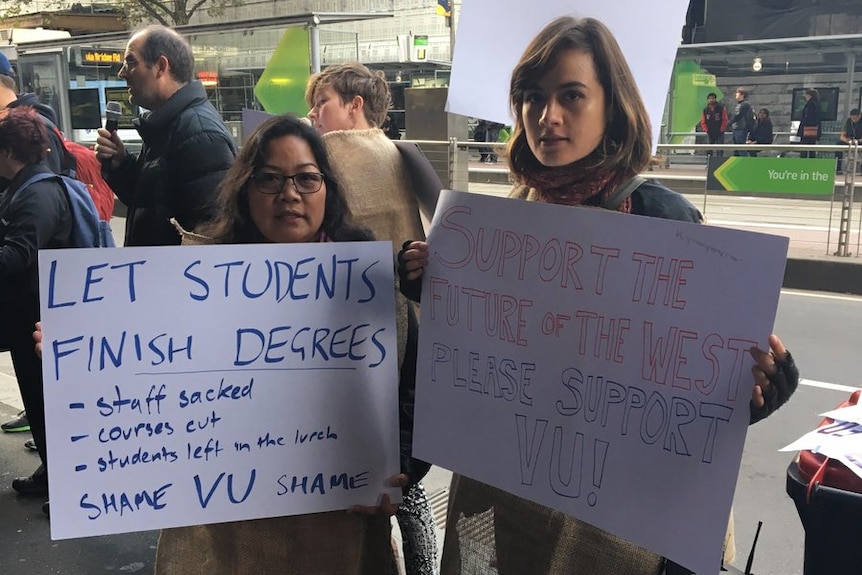 LET STUDENTS
FINISH DEGREES
- staff sacked
- courses cut
- students left in the lurch
SHAME VU SHAME
SUPPORT THE
FUTURE OF THE WEST
PLEASE SUPPORT
VU!
You're in the